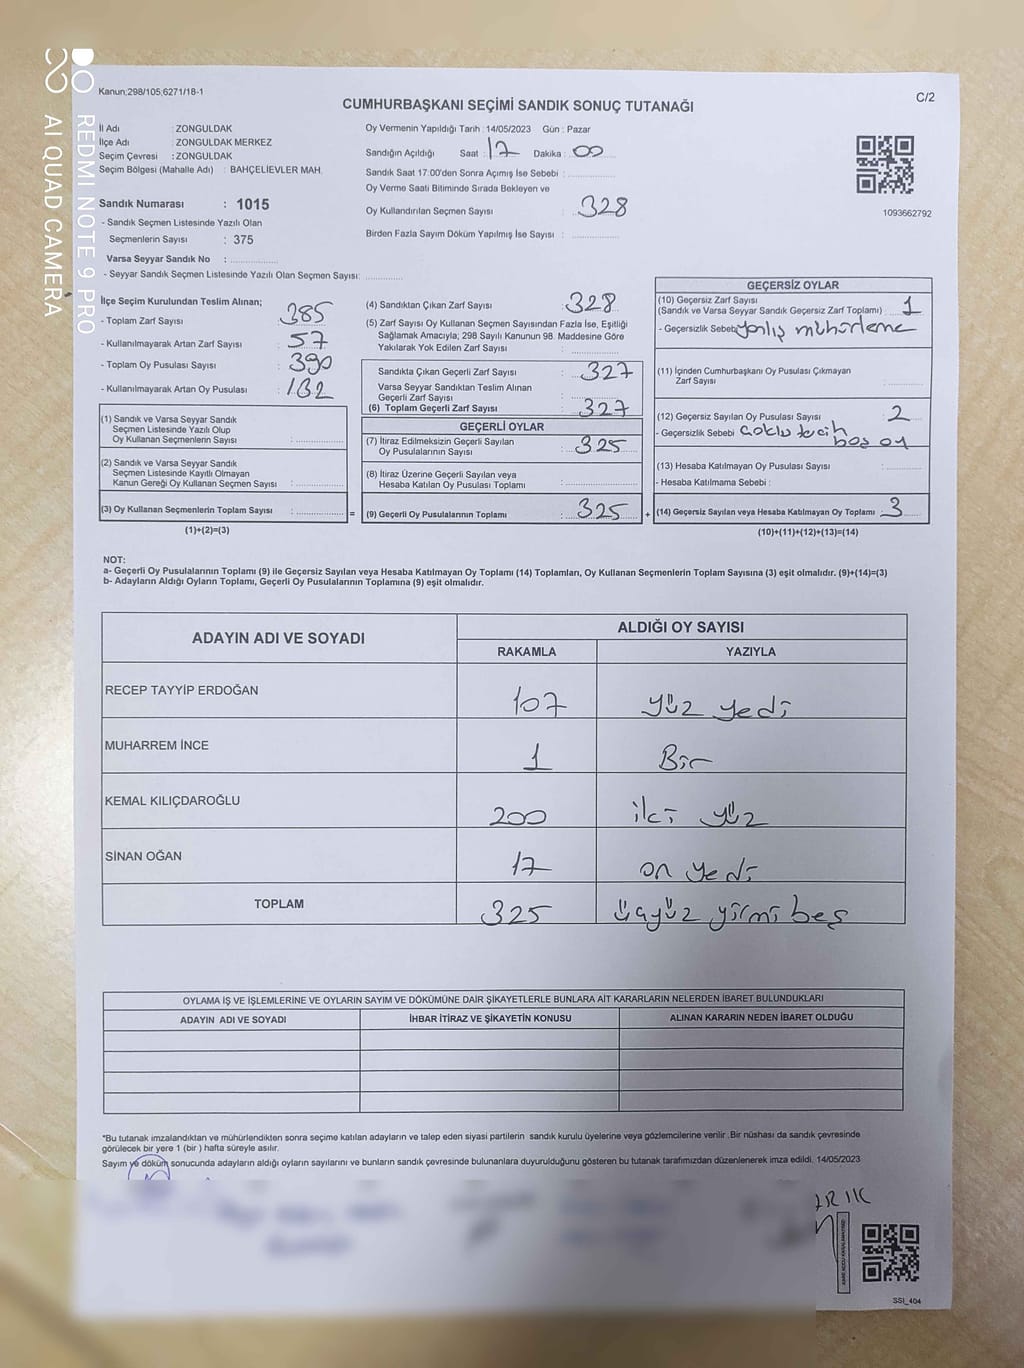 Kanun;298/105;6271/18-1
C/2
CUMHURBAŞKANI SEÇİMİ SANDIK SONUÇ TUTANAĞI
İl Adı : ZONGULDAK
İlçe Adı : ZONGULDAK MERKEZ
Seçim Çevresi : ZONGULDAK
Seçim Bölgesi (Mahalle Adı) : BAHÇELİEVLER MAH.
Sandık Numarası : 1015
- Sandık Seçmen Listesinde Yazılı Olan
Seçmenlerin Sayısı : 375
Varsa Seyyar Sandık No :
- Seyyar Sandık Seçmen Listesinde Yazılı Olan Seçmen Sayısı:
Oy Vermenin Yapıldığı Tarih : 14/05/2023 Gün : Pazar
Sandığın Açıldığı Saat : 17 Dakika : 00
Sandık Saat 17:00'den Sonra Açımış İse Sebebi :
Oy Verme Saati Bitiminde Sırada Bekleyen ve
Oy Kullandırılan Seçmen Sayısı : 328
Birden Fazla Sayım Döküm Yapılmış İse Sayısı :
1093662792
İlçe Seçim Kurulundan Teslim Alınan;
- Toplam Zarf Sayısı : 385
- Kullanılmayarak Artan Zarf Sayısı : 57
- Toplam Oy Pusulası Sayısı : 390
- Kullanılmayarak Artan Oy Pusulası :
(1) Sandık ve Varsa Seyyar Sandık
Seçmen Listesinde Yazılı Olup
Oy Kullanan Seçmenlerin Sayısı :
(2) Sandık ve Varsa Seyyar Sandık
Seçmen Listesinde Kayıtlı Olmayan
Kanun Gereği Oy Kullanan Seçmen Sayısı :
(3) Oy Kullanan Seçmenlerin Toplam Sayısı : =
(1)+(2)=(3)
(4) Sandıktan Çıkan Zarf Sayısı : 328
(5) Zarf Sayısı Oy Kullanan Seçmen Sayısından Fazla İse, Eşitliği
Sağlamak Amacıyla; 298 Sayılı Kanunun 98. Maddesine Göre
Yakılarak Yok Edilen Zarf Sayısı :
Sandıkta Çıkan Geçerli Zarf Sayısı : 327
Varsa Seyyar Sandıktan Teslim Alınan
Geçerli Zarf Sayısı :
(6) Toplam Geçerli Zarf Sayısı : 327
GEÇERLİ OYLAR
(7) İtiraz Edilmeksizin Geçerli Sayılan
Oy Pusulalarının Sayısı : 325
(8) İtiraz Üzerine Geçerli Sayılan veya
Hesaba Katılan Oy Pusulası Toplamı :
(9) Geçerli Oy Pusulalarının Toplamı : 325 +
GEÇERSİZ OYLAR
(10) Geçersiz Zarf Sayısı
(Sandık ve Varsa Seyyar Sandık Geçersiz Zarf Toplamı) : 1
- Geçersizlik Sebebi yanlış mühürleme
(11) İçinden Cumhurbaşkanı Oy Pusulası Çıkmayan
Zarf Sayısı :
(12) Geçersiz Sayılan Oy Pusulası Sayısı : 2
- Geçersizlik Sebebi
boş oy
(13) Hesaba Katılmayan Oy Pusulası Sayısı :
- Hesaba Katılmama Sebebi :
(14) Geçersiz Sayılan veya Hesaba Katılmayan Oy Toplamı : 3
(10)+(11)+(12)+(13)=(14)
NOT:
a- Geçerli Oy Pusulalarının Toplamı (9) ile Geçersiz Sayılan veya Hesaba Katılmayan Oy Toplamı (14) Toplamları, Oy Kullanan Seçmenlerin Toplam Sayısına (3) eşit olmalıdır. (9)+(14)=(3)
b- Adayların Aldığı Oyların Toplamı, Geçerli Oy Pusulalarının Toplamına (9) eşit olmalıdır.
ADAYIN ADI VE SOYADI
ALDIĞI OY SAYISI
RAKAMLA YAZIYLA
RECEP TAYYİP ERDOĞAN 107 yüz yedi
MUHARREM İNCE 1 Bir
KEMAL KILIÇDAROĞLU 200 iki yüz
SİNAN OĞAN 17 on yedi
TOPLAM 325 üçyüz yirmi beş
OYLAMA İŞ VE İŞLEMLERİNE VE OYLARIN SAYIM VE DÖKÜMÜNE DAİR ŞİKAYETLERLE BUNLARA AİT KARARLARIN NELERDEN İBARET BULUNDUKLARI
ADAYIN ADI VE SOYADI İHBAR İTİRAZ VE ŞİKAYETİN KONUSU ALINAN KARARIN NEDEN İBARET OLDUĞU
*Bu tutanak imzalandıktan ve mühürlendikten sonra seçime katılan adayların ve talep eden siyasi partilerin sandık kurulu üyelerine veya gözlemcilerine verilir .Bir nüshası da sandık çevresinde
görülecek bir yere 1 (bir ) hafta süreyle asılır.
Sayım ve döküm sonucunda adayların aldığı oyların sayılarını ve bunların sandık çevresinde bulunanlara duyurulduğunu gösteren bu tutanak tarafımızdan düzenlenerek imza edildi. 14/05/2023
SSI_404
REDMI NOTE 9 PRO
AI QUAD CAMERA